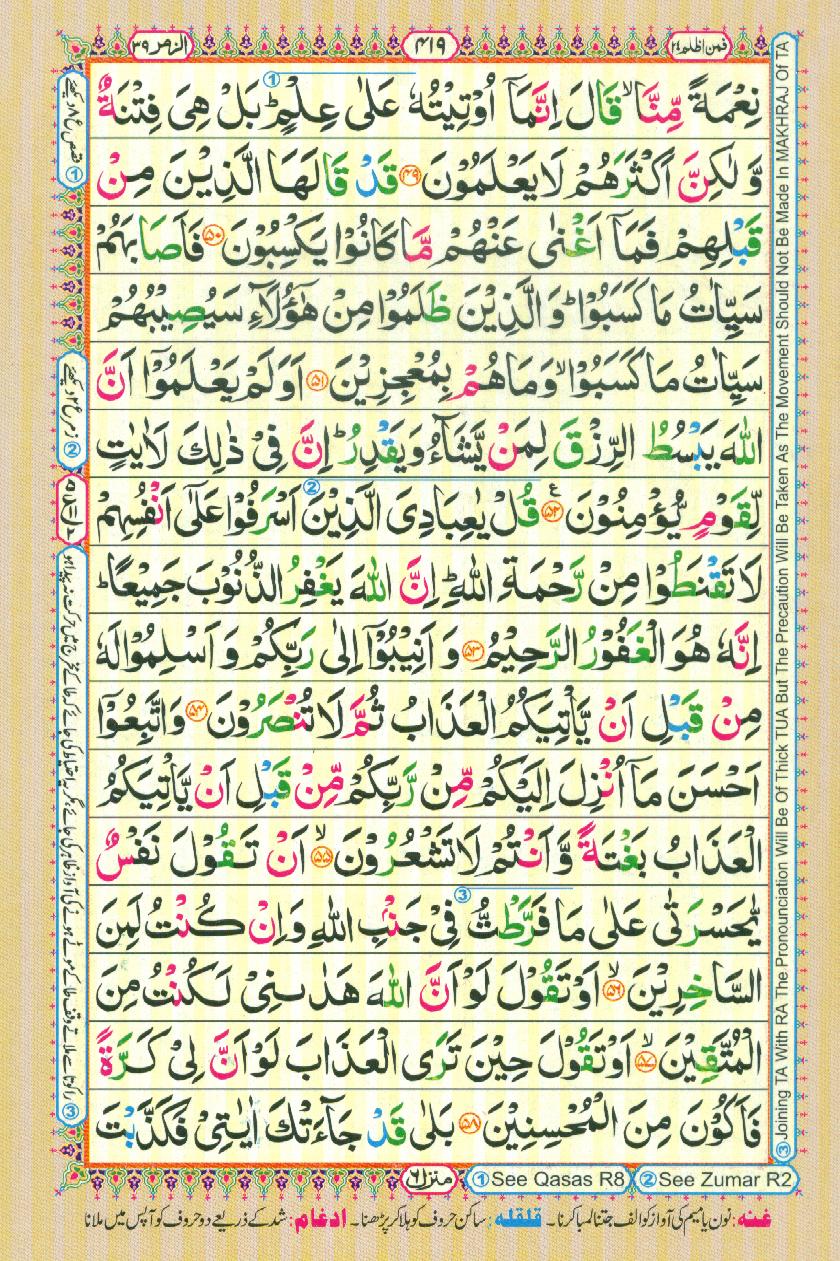 فمن اظلم ۲۴
۴۱۹
الزمر ۳۹
نِعْمَةً مِّنَّا ۙ قَالَ اِنَّمَاۤ اُوْتِیْتُهٗ عَلٰى عِلْمٍ ؕ بَلْ هِیَ فِتْنَةٌ
وَّ لٰكِنَّ اَكْثَرَهُمْ لَا یَعْلَمُوْنَ ﴿۴۹﴾ قَدْ قَالَهَا الَّذِیْنَ مِنْ
قَبْلِهِمْ فَمَاۤ اَغْنٰى عَنْهُمْ مَّا كَانُوْا یَكْسِبُوْنَ ﴿۵۰﴾ فَاَصَابَهُمْ
سَیِّاٰتُ مَا كَسَبُوْا ؕ وَ الَّذِیْنَ ظَلَمُوْا مِنْ هٰۤؤُلَآءِ سَیُصِیْبُهُمْ
سَیِّاٰتُ مَا كَسَبُوْا ۙ وَ مَا هُمْ بِمُعْجِزِیْنَ ﴿۵۱﴾ اَوَ لَمْ یَعْلَمُوْۤا اَنَّ
اللّٰهَ یَبْسُطُ الرِّزْقَ لِمَنْ یَّشَآءُ وَ یَقْدِرُ ؕ اِنَّ فِیْ ذٰلِكَ لَاٰیٰتٍ
لِّقَوْمٍ یُّؤْمِنُوْنَ ﴿۵۲﴾ ع قُلْ یٰعِبَادِیَ الَّذِیْنَ اَسْرَفُوْا عَلٰۤى اَنْفُسِهِمْ
لَا تَقْنَطُوْا مِنْ رَّحْمَةِ اللّٰهِ ؕ اِنَّ اللّٰهَ یَغْفِرُ الذُّنُوْبَ جَمِیْعًا ؕ
اِنَّهٗ هُوَ الْغَفُوْرُ الرَّحِیْمُ ﴿۵۳﴾ وَ اَنِیْبُوْۤا اِلٰى رَبِّكُمْ وَ اَسْلِمُوْا لَهٗ
مِنْ قَبْلِ اَنْ یَّاْتِیَكُمُ الْعَذَابُ ثُمَّ لَا تُنْصَرُوْنَ ﴿۵۴﴾ وَ اتَّبِعُوْۤا
اَحْسَنَ مَاۤ اُنْزِلَ اِلَیْكُمْ مِّنْ رَّبِّكُمْ مِّنْ قَبْلِ اَنْ یَّاْتِیَكُمُ
الْعَذَابُ بَغْتَةً وَّ اَنْتُمْ لَا تَشْعُرُوْنَ ﴿۵۵﴾ ۙ اَنْ تَقُوْلَ نَفْسٌ
یّٰحَسْرَتٰى عَلٰى مَا فَرَّطْتُّ فِیْ جَنْۢبِ اللّٰهِ وَ اِنْ كُنْتُ لَمِنَ
السَّاخِرِیْنَ ﴿۵۶﴾ ۙ اَوْ تَقُوْلَ لَوْ اَنَّ اللّٰهَ هَدٰىنِیْ لَكُنْتُ مِنَ
الْمُتَّقِیْنَ ﴿۵۷﴾ ۙ اَوْ تَقُوْلَ حِیْنَ تَرَى الْعَذَابَ لَوْ اَنَّ لِیْ كَرَّةً
فَاَكُوْنَ مِنَ الْمُحْسِنِیْنَ ﴿۵۸﴾ بَلٰى قَدْ جَآءَتْكَ اٰیٰتِیْ فَكَذَّبْتَ
منزل ۶
① See Qasas R8
② See Zumar R2
③ Joining TA With RA The Pronounciation Will Be Of Thick TUA But The Precaution Will Be Taken As The Movement Should Not Be Made In MAKHRAJ Of TA
غنه: نون یا میم کی آواز کو الف جتنا لمبا کرنا۔ قلقله: ساکن حروف کو ہلا کر پڑھنا۔ ادغام: شد کے ذریعے دو حروف کو آپس میں ملانا